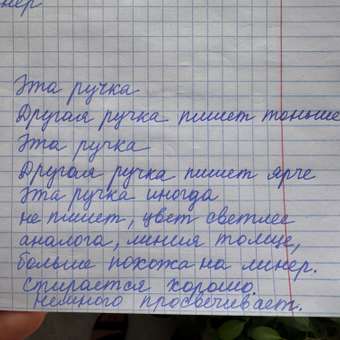 нер
Эта ручка
Другая ручка пишет тоньше
Эта ручка
Другая ручка пишет ярче
Эта ручка иногда
не пишет, цвет светлее
аналога, линия толще,
больше похожа на линер.
Стирается хорошо.
Немного просвечивает.